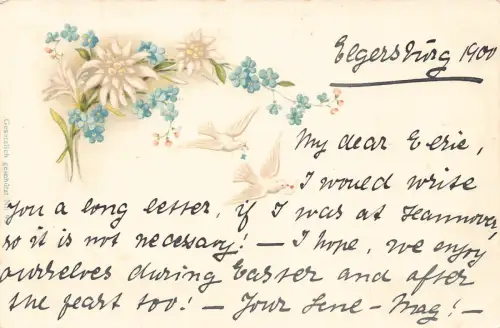 Elgersburg 1900
My dear Evrie,
I would write
you a long letter, if I was at Hannover,
so it is not necessary! — I hope, we enjoy
ourselves during Easter and after
the feast too! — Your Lene-Mag! —
Gesetzlich geschützt